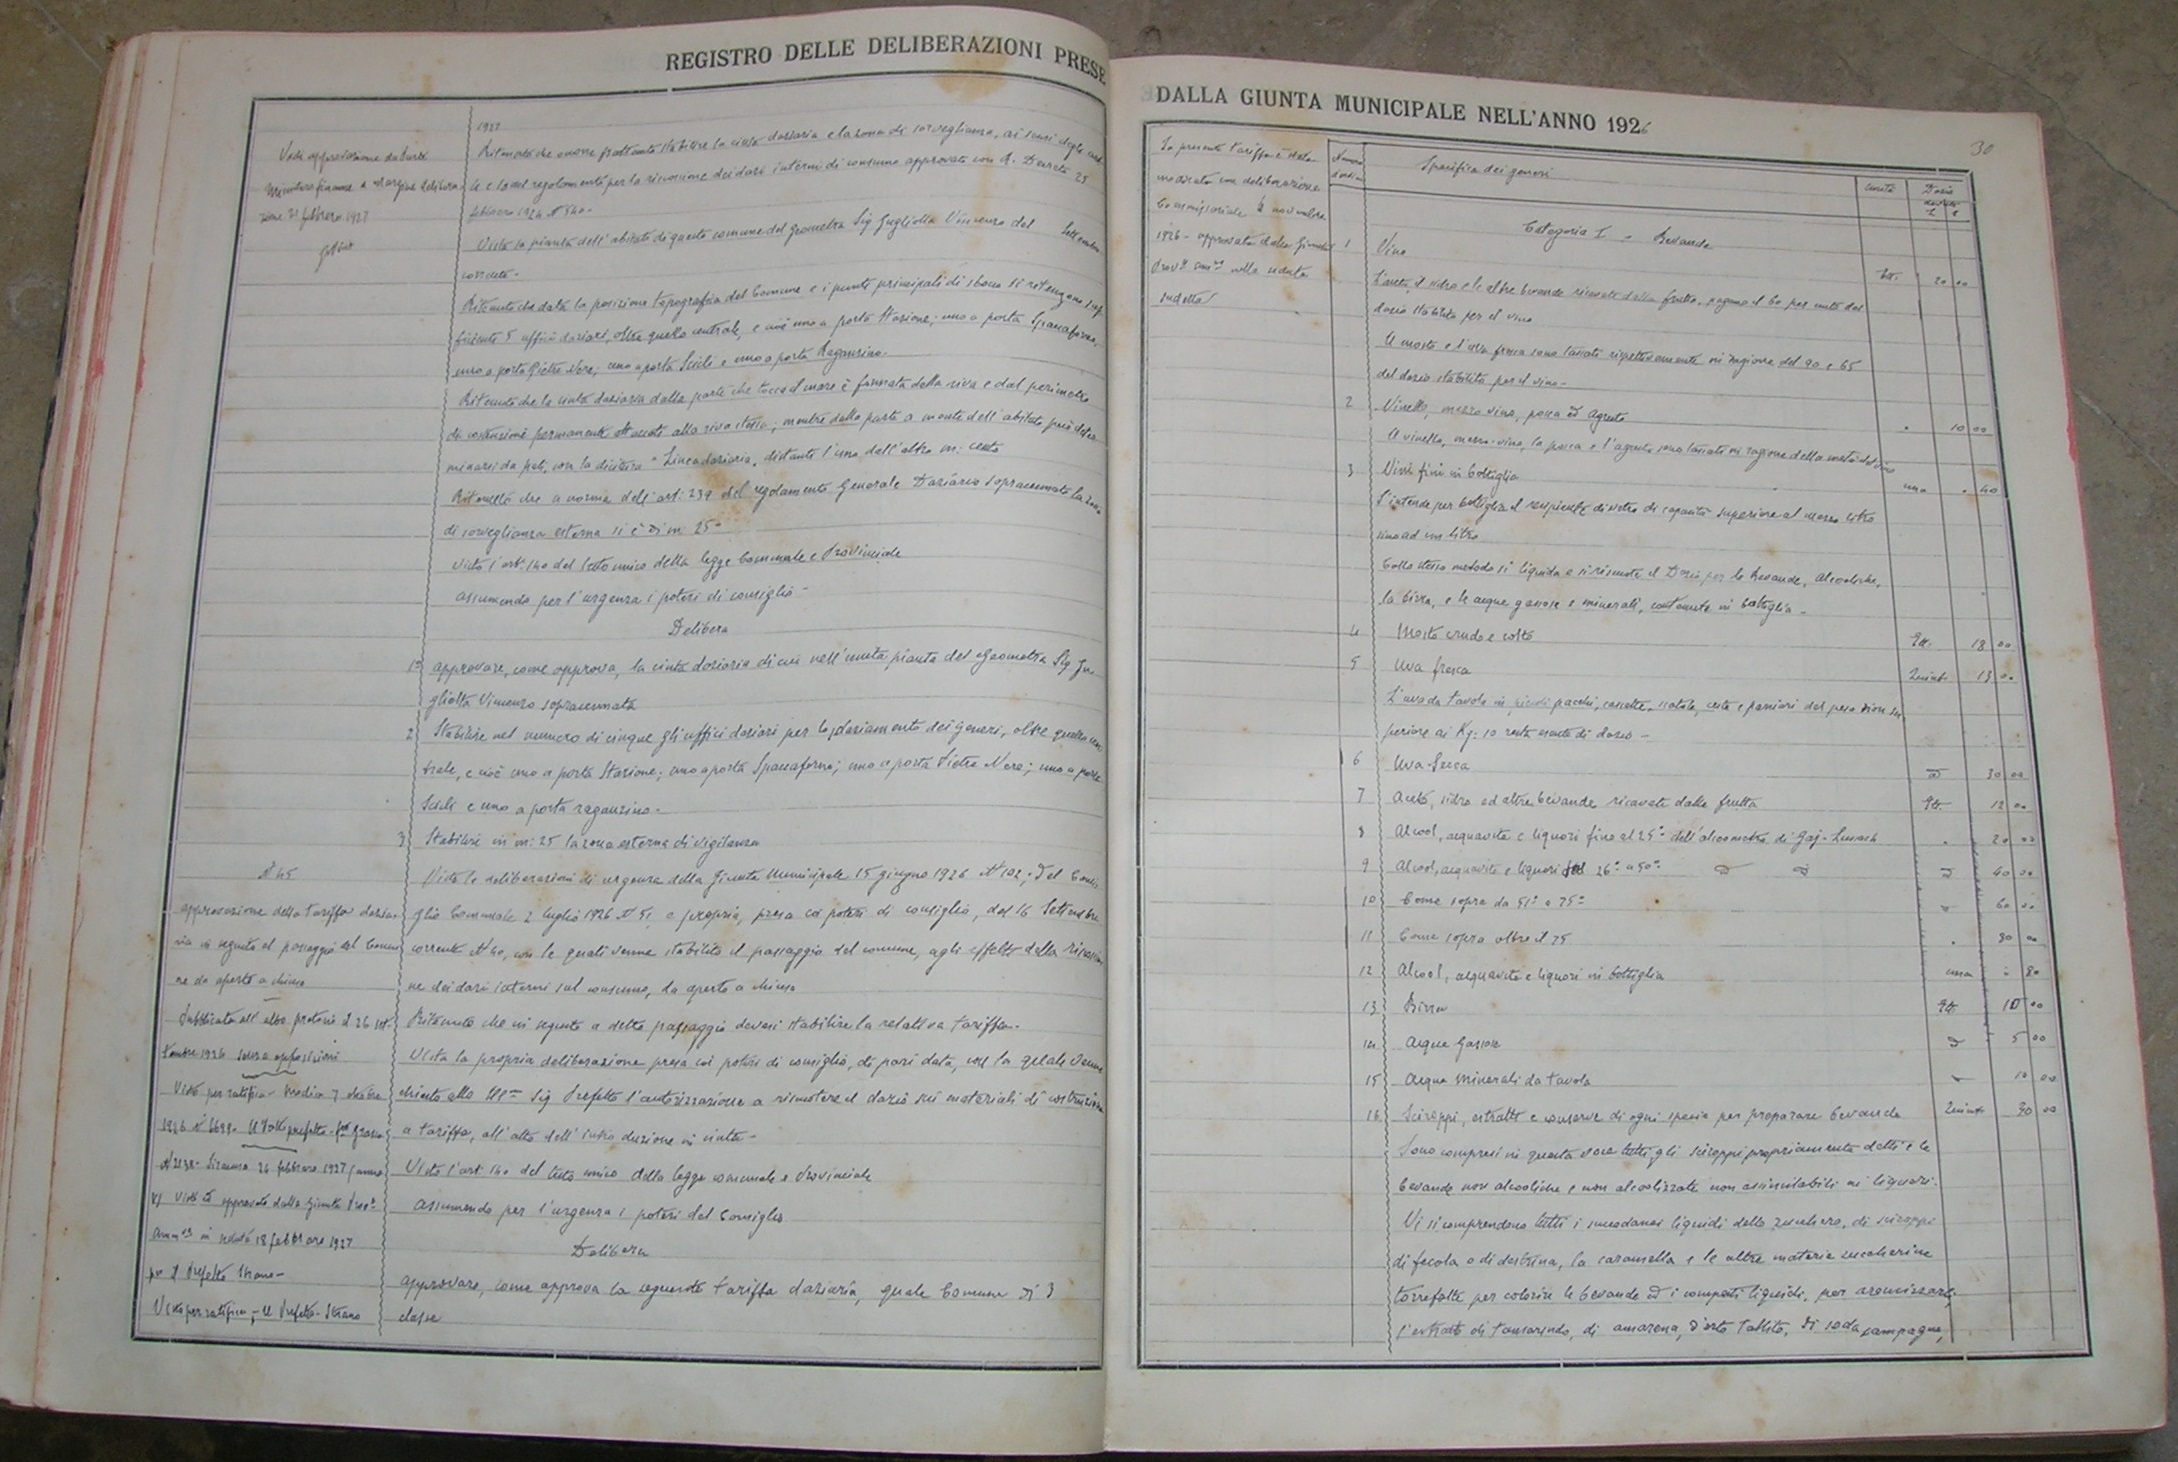 REGISTRO DELLE DELIBERAZIONI PRESE
1927
Ritenuto che occorre frattanto stabilire la cinta daziaria e la zona di sorveglianza, ai sensi degli art.
e 10 del regolamento per la riscossione dei dazi interni di consumo approvato con R. Decreto 25
febbraio 1924 N 540-
Vista la pianta dell'abitato di questo comune del geometra Sig Gugliotta Vincenzo del Settembre
corrente-
Ritenuto che data la posizione topografica del Comune e i punti principali di sbocco si ritengono suf
ficienti 5 uffici daziari, oltre quello centrale, e cioè uno a porta Stazione; uno a porta Spaccaforno,
uno a porta Pietre Nere; uno a porta Scicli e uno a porta Raganzino.
Ritenuto che la cinta daziaria dalla parte che tocca il mare è formata della riva e dal perimetro
di costruzioni permanenti attaccati alla riva stessa; mentre dalla parte a monte dell'abitato può deter
minarsi da pali, con la dicitura "Linea daziaria, distanti l'uno dall'altro m: cento
Ritenuto che a norma dell'art: 239 del regolamento Generale Daziario sopracennato la zona
di sorveglianza esterna si è di m 25-
Visto l'art. 140 del testo unico della legge Comunale e Provinciale
assumendo per l'urgenza i poteri di consiglio-
Delibera
1º approvare, come approva, la cinta daziaria di cui nell'unita pianta del Geometra Sig Gu
gliotta Vincenzo sopracennata
2 Stabilire nel numero di cinque gli uffici daziari per lo sdaziamento dei generi, oltre quello cen
trale, e cioè uno a porta Stazione; uno a porta Spaccaforno; uno a porta Pietre Nere; uno a porta
Scicli e uno a porta raganzino-
3 Stabilire in m: 25 la zona esterna di vigilanza
Vedi approvazione
Ministero finanze a margine delibera
zione 21 febbraio 1927
N 45
approvazione della tariffa dazia
ria in seguito al passaggio del Comu
ne da aperto a chiuso
Pubblicata all'albo pretorio il 26 set-
tembre 1926 senza opposizioni
Visto per ratifica- Modica 7 ottobre
1926 N 6698- Il Sotto prefetto-
N 2138- Siracusa 24 febbraio 1927 (anno
V) Visto ed approvato dalla Giunta Prov.
Amm.va in seduta 18 febbraio 1927
pr Il Prefetto Strano-
Visto per ratifica- Il Prefetto- Strano
Viste le deliberazioni di urgenza della Giunta Municipale 15 giugno 1926 N 102; del Consi
glio Comunale 2 luglio 1926 N 51 e propria, presa coi poteri di consiglio, del 16 Settembre
corrente N 40, con le quali venne stabilito il passaggio del comune, agli effetti della riscossio
ne dei dazi interni sul consumo, da aperto a chiuso
Ritenuto che in seguito a detto passaggio devesi stabilire la relativa tariffa.
Vista la propria deliberazione presa coi poteri di consiglio, di pari data, con la quale venne
chiesto allo Ill.mo Sig Prefetto l'autorizzazione a riscuotere il dazio sui materiali di costruzione
a tariffa, all'atto dell'introduzione in cinta-
Visto l'art 140 del testo unico della legge comunale e Provinciale
assumendo per l'urgenza i poteri del Consiglio
Delibera
approvare, come approva la seguente tariffa daziaria, quale Comune di 3
classe
DALLA GIUNTA MUNICIPALE NELL'ANNO 1926
30
La presente tariffa è stata
modificata con deliberazione
Commissariale novembre
1926- approvata dalla Giunta
Prov. Amm.va nella seduta
suddetta
Numero d'ordine Specifica dei generi unità Dazio L c
Categoria I - Bevande
1 Vino Ett. 20 00
L'aceto, il sidro e le altre bevande ricavate dalla frutta, pagano il 60 per cento del
dazio stabilito per il vino
Il mosto e l'uva fresca sono tassati rispettivamente in ragione del 90 e 65
del dazio stabilito per il vino-
2 Vinello, mezzo vino, posca ed agresto " 10 00
Il vinello, mezzo-vino, la posca e l'agresto sono tassati in ragione della metà del vino
3 Vini fini in bottiglia una " 40
S'intende per bottiglia il recipiente di vetro di capacità superiore al mezzo litro
sino ad un litro
Collo stesso metodo si liquida e si riscuote il Dazio per le bevande, alcooliche,
la birra, e le acque gassose e minerali, contenute in bottiglia-
4 Mosto crudo e cotto Ett. 18 00
5 Uva fresca Quint. 13 00
L'uva da tavola in piccoli pacchi, cassette, scatole, ceste e panieri del peso non su
periore ai Kg: 10 resta esente di dazio-
6 Uva Secca id 30 00
7 Aceto, sidro ed altre bevande ricavate dalla frutta Ett. 12 00
8 Alcool, acquavite e liquori fino al 25º dell'alcoometro di Gay-Lussach " 20 00
9 Alcool, acquavite e liquori dal 26º a 50º id id id 40 00
10 Come sopra da 51º a 75º " 60 00
11 Come sopra oltre il 75 " 80 00
12 Alcool, acquavite e liquori in bottiglia una " 80
13 Birra Ett. 10 00
14 Acque Gassose id 5 00
15 Acque minerali da tavola " 10 00
16 Sciroppi, estratti e conserve di ogni specie per preparare bevande Quint. 30 00
Sono compresi in questa voce tutti gli sciroppi propriamente detti e le
bevande non alcooliche e non alcoolizzate non assimilabili ai liquori.
Vi si comprendono tutti i succedanei liquidi dello zucchero, di sciroppi
di fecola o di destrina, la caramella e le altre materie zuccherine
torrefatte per colorire le bevande ed i composti liquidi, per aromizzarli
l'estratto di tamarindo, di amarena, d'orzo tallito, di soda sciampagna,